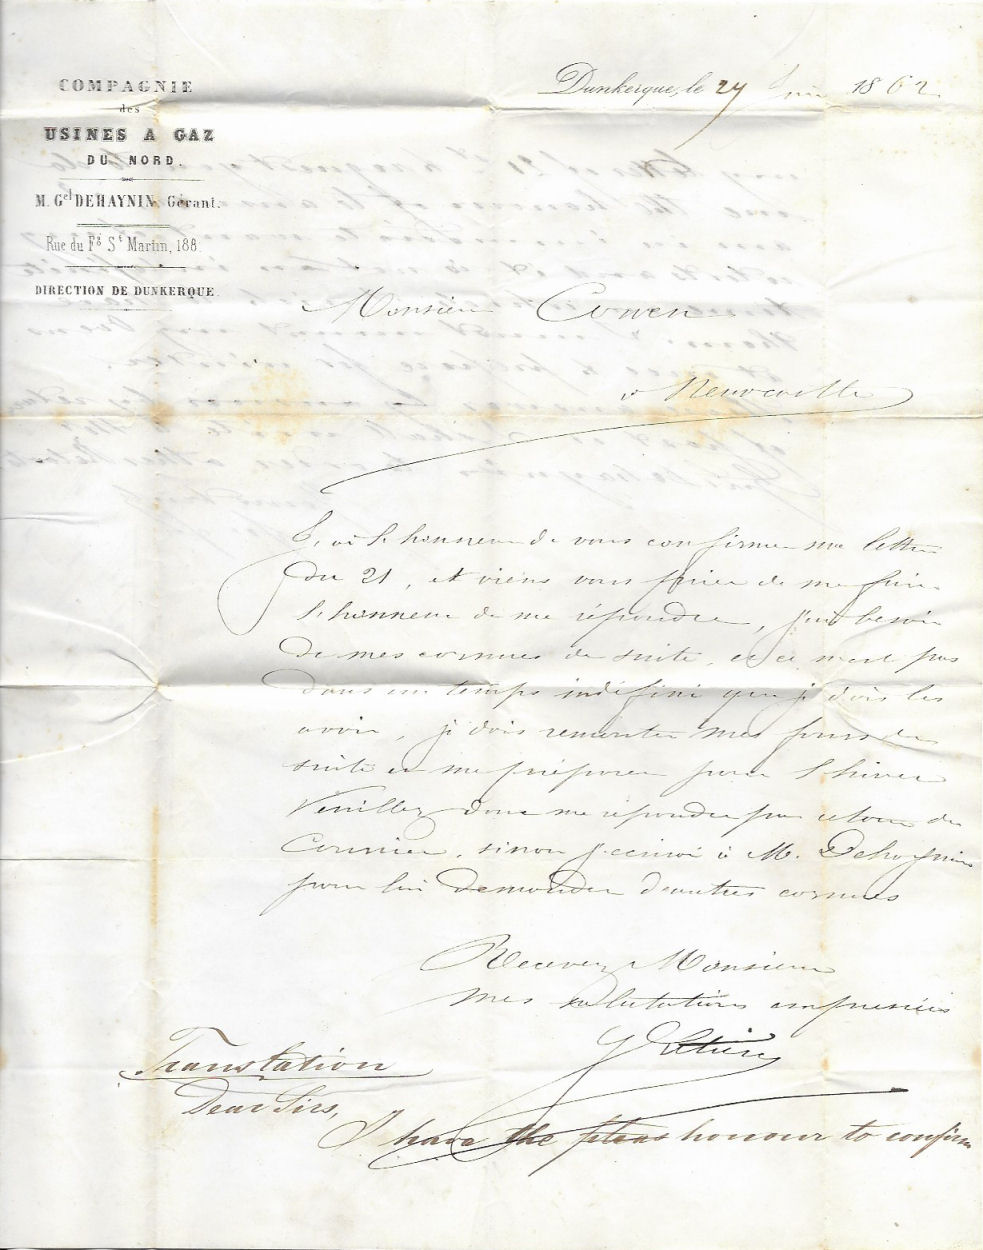 COMPAGNIE
des
USINES A GAZ
DU NORD.
M. Gel DEHAYNIN, Gérant.
Rue du Fg St Martin, 188.
DIRECTION DE DUNKERQUE.
Dunkerque, le 24 Juin 1862.
Monsieur Cowen
à Newcastle
J'ai l'honneur de vous confirmer ma lettre
du 21, et viens vous prier de me faire
l'honneur de me répondre, j'ai besoin
de mes cornues de suite, et ce n'est pas
dans un temps indéfini que je dois les
avoir, je dois remonter mes fours de
suite et me préparer pour l'hiver
Veuillez donc me répondre par retour du
Courrier, sinon j'écrirai à M. Dehaynin
pour lui demander d'autres cornues
Recevez Monsieur
mes salutations empressées
Translation
Dear Sirs,
I have the pleas honour to confirm